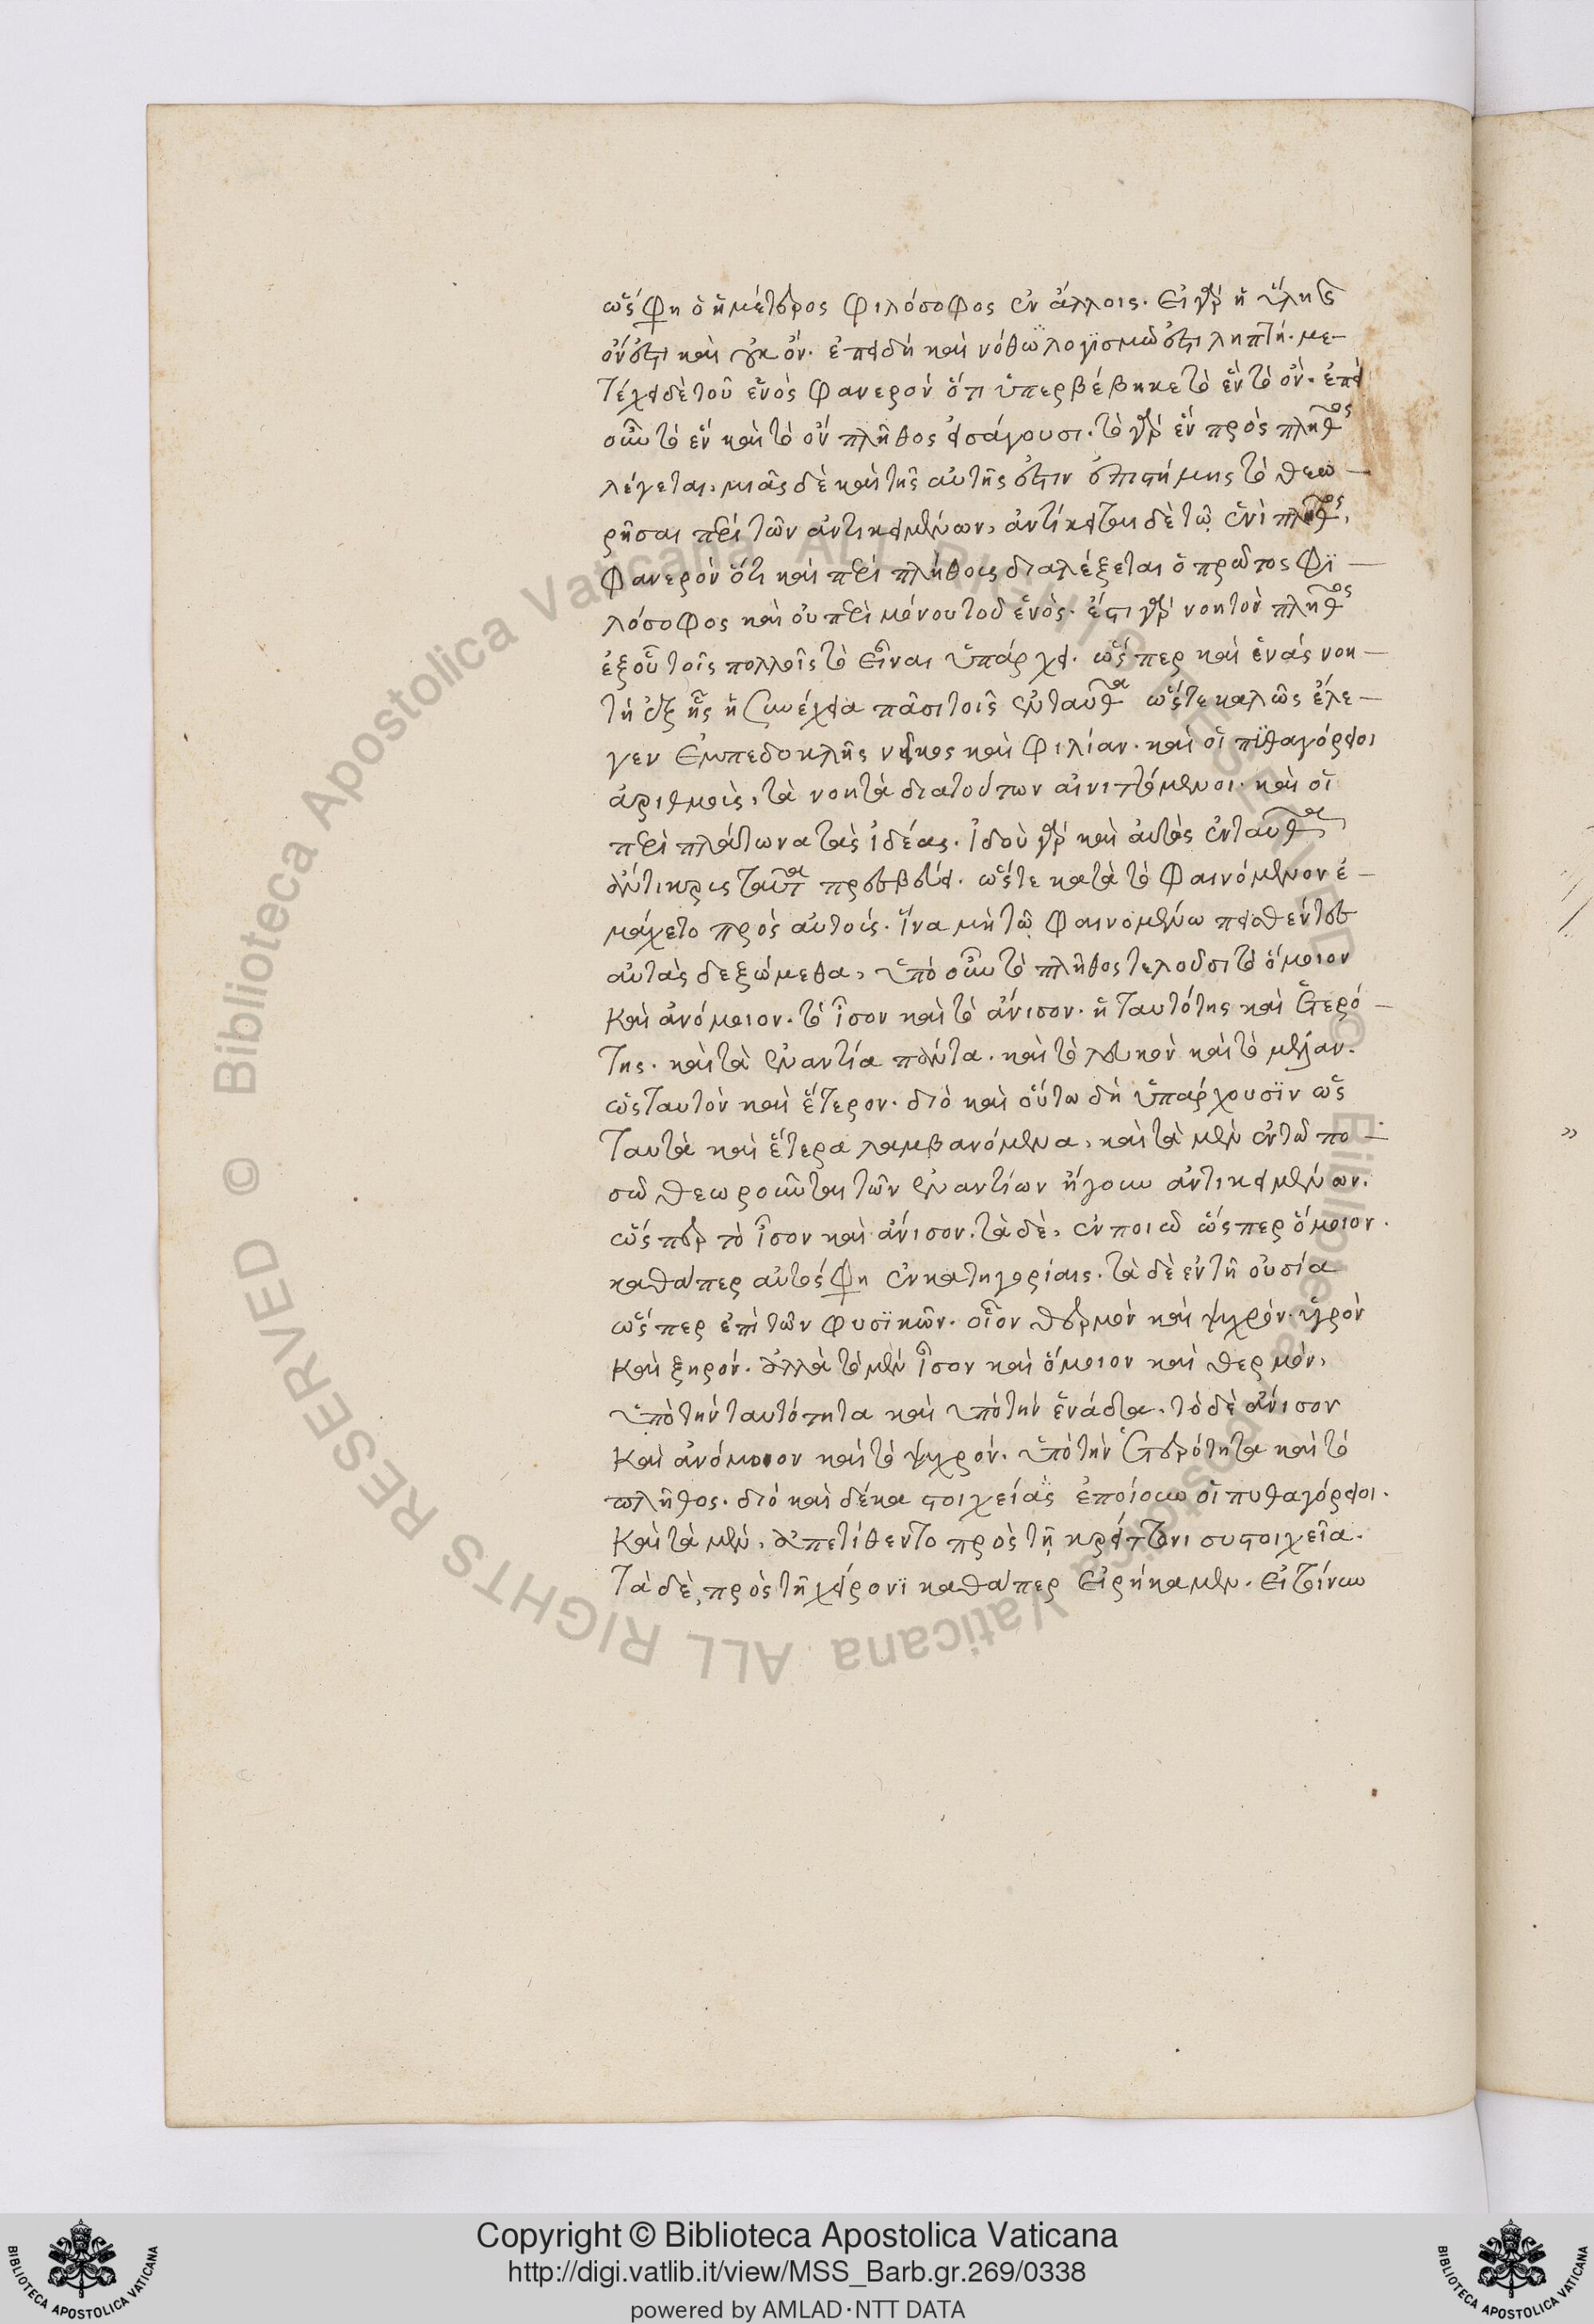 ὥς φη ὁ ἡμέτερος φιλόσοφος ἐν ἄλλοις. εἰ γὰρ ἡ ὕλη
ὄν ἐστι καὶ οὐκ ὄν. ἐπειδὴ καὶ νόθω λογισμῶ ἐστι ληπτή. με-
τέχει δὲ τοῦ ἑνὸς φανερὸν ὅτι ὑπερβέβηκε τὸ ἓν τὸ ὄν. ἐπεὶ
οὖν τὸ ἓν καὶ τὸ ὂν πλῆθος εἰσάγουσι. τὸ γὰρ ἓν πρὸς πλῆθος
λέγεται, μιᾶς δὲ καὶ τῆς αὐτῆς ἐστιν ἐπιστήμης τὸ θεω-
ρῆσαι περὶ τῶν ἀντικειμένων, ἀντίκειται δὲ τῷ ἑνὶ πλῆθος,
φανερὸν ὅτι καὶ περὶ πλήθους διαλέξεται ὁ πρῶτος φϊ-
λόσοφος καὶ οὐ περὶ μόνου τοῦ ἑνὸς. ἔστι γὰρ νοητὸν πλῆθος
ἐξ οὗ τοῖς πολλοῖς τὸ εἶναι ὑπάρχει. ὥςπερ καὶ ἑνάς νοη-
τὴ ἐξ ἧς ἡ συνέχεια πᾶσι τοῖς ἐνταῦθα ὥςτε καλῶς ἔλε-
γεν Ἐμπεδοκλῆς νεῖκος καὶ φιλίαν. καὶ οἱ πϊθαγόρειοι
ἀριθμοὺς, τὰ νοητὰ διὰ τούτων αἰνιττόμενοι. καὶ οἱ
περὶ πλάτωνα τὰς ἰδέας. ἰδοὺ γὰρ καὶ αὐτὸς ἐνταῦθα
ἄντικρυς ταῦτα πρεσβεύει. ὥςτε κατὰ τὸ φαινόμενον ἐ-
μάχετο πρὸς αὐτούς. ἵνα μὴ τῷ φαινομένω πεισθέντες
αὐτὰς δεξώμεθα, ὑπὸ οὖν τὸ πλῆθος τελοῦσι τὸ ὅμοιον
καὶ ἀνόμοιον. τὸ ἶσον καὶ τὸ ἄνισον. ἡ ταυτότης καὶ ἑτερό-
της. καὶ τὰ ἐναντία πάντα. καὶ τὸ λευκὸν καὶ τὸ μέλαν.
ὡς ταυτὸν καὶ ἕτερον. διὸ καὶ οὕτω δὴ ὑπάρχουσϊν ὡς
ταυτὰ καὶ ἕτερα λαμβανόμενα, καὶ τὰ μὲν ἐν τῶ πο-
σῶ θεωροῦνται τῶν ἐναντίων ἤγουν ἀντικειμένων.
ὥςπερ τὸ ἶσον καὶ ἄνισον. τὰ δὲ, ἐν ποιῶ ὥςπερ ὅμοιον.
καθάπερ αὐτός φη ἐν κατηγορίαις. τὰ δὲ ἐν τῆ οὐσία
ὥςπερ ἐπὶ τῶν φυσϊκῶν. οἷον θερμὸν καὶ ψυχρόν. ὑγρὸν
καὶ ξηρόν. ἀλλὰ τὸ μὲν ἶσον καὶ ὅμοιον καὶ θερμὸν,
ὑπὸ τὴν ταυτότητα καὶ ὑπὸ τὴν ἑνάδα. τὸ δὲ ἄνισον
καὶ ἀνόμοιον καὶ τὸ ψυχρόν. ὑπὸ τὴν ἑτερότητα καὶ τὸ
πλῆθος. διὸ καὶ δέκα στοιχείας ἐποίουν οἱ πυθαγόρειοι.
καὶ τὰ μὲν, ἀπετίθεντο πρὸς τῇ κρείττονι συστοιχεῖα.
τὰ δὲ, πρὸς τῇ χείρονϊ καθάπερ εἰρήκαμεν.
Copyright © Biblioteca Apostolica Vaticana
http://digi.vatlib.it/view/MSS_Barb.gr.269/0338
powered by AMLAD·NTT DATA